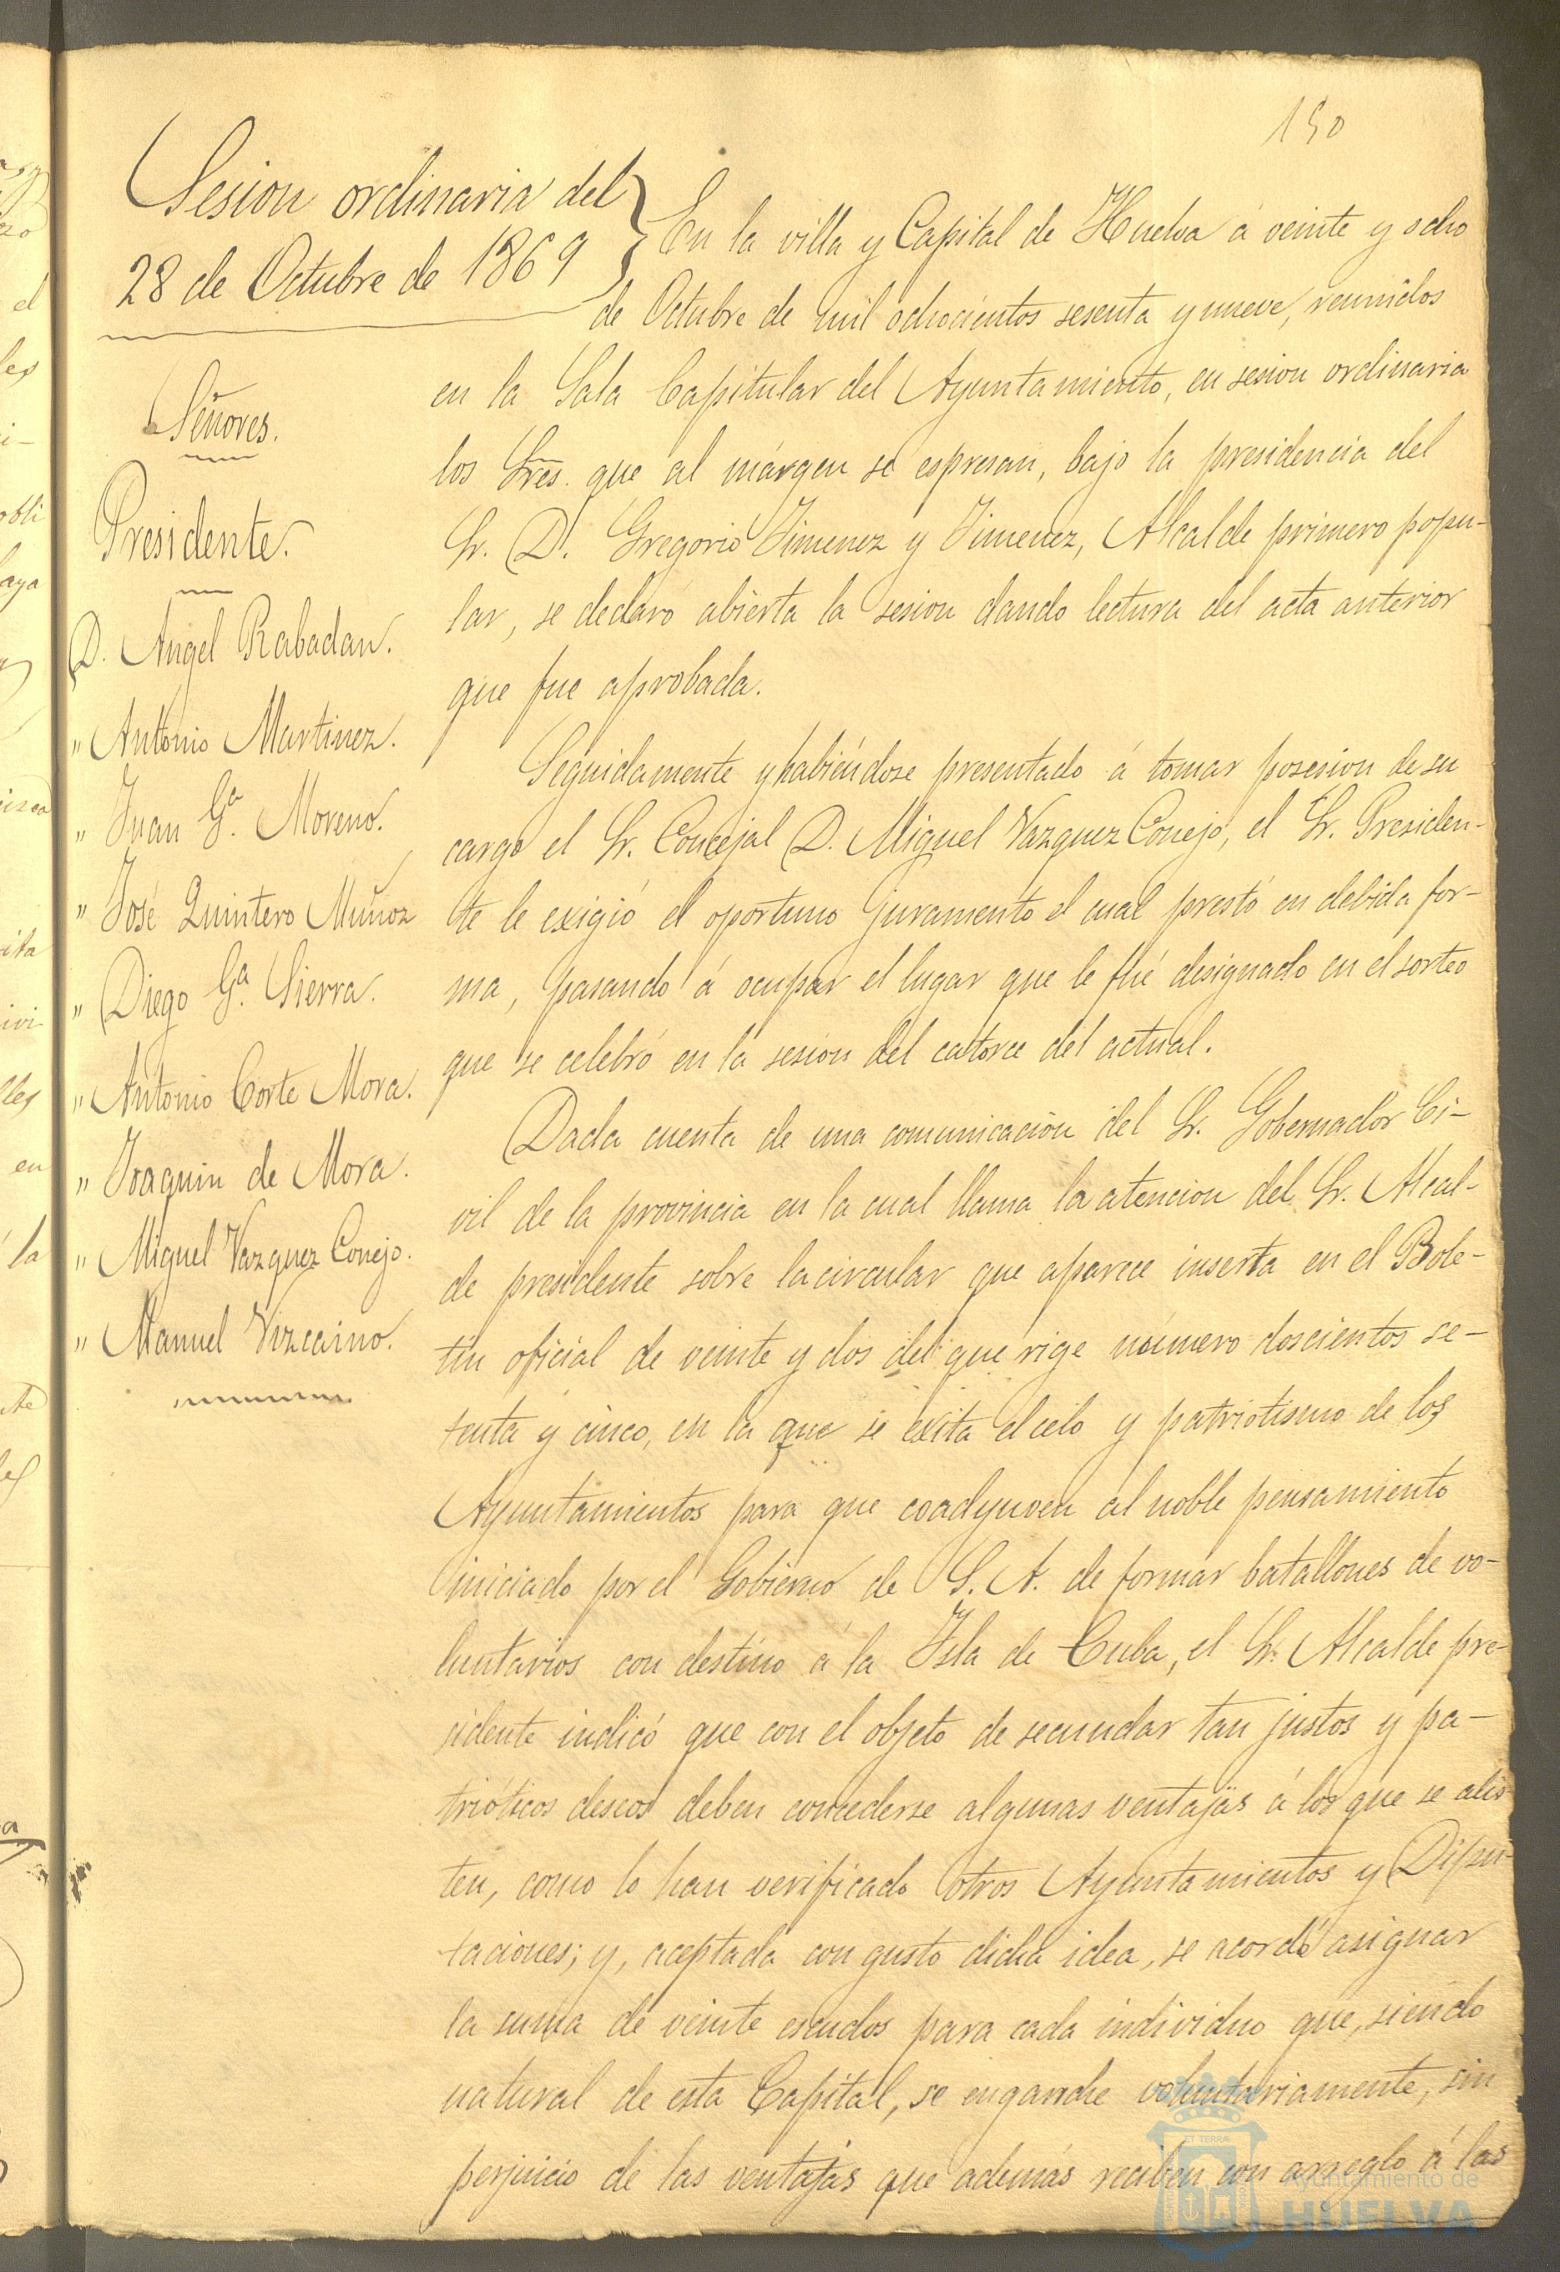 150
Sesion ordinaria del
28 de Octubre de 1869
Señores.
Presidente.
D. Angel Rabadan.
" Antonio Martinez.
" Juan Gª. Moreno.
" José Quintero Muñoz
" Diego Gª. Sierra.
" Antonio Corte Mora.
" Joaquin de Mora.
" Miguel Vazquez Conejo.
" Manuel Vizcaino.
En la villa y Capital de Huelva á veinte y ocho
de Octubre de mil ochocientos sesenta y nueve, reunidos
en la Sala Capitular del Ayuntamiento, en sesion ordinaria
los Sres. que al márgen se espresan, bajo la presidencia del
Sr. D. Gregorio Jimenez y Jimenez, Alcalde primero popu-
lar, se declaró abierta la sesion dando lectura del acta anterior
que fue aprobada.
Seguidamente y habiéndose presentado á tomar posesion de su
cargo el Sr. Concejal D. Miguel Vazquez Conejo, el Sr. Presiden-
te le exigió el oportuno juramento el cual prestó en debida for-
ma, pasando á ocupar el lugar que le fué designado en el sorteo
que se celebró en la sesion del catorce del actual.
Dada cuenta de una comunicacion del Sr. Gobernador Ci-
vil de la provincia en la cual llama la atencion del Sr. Alcal-
de presidente sobre la circular que aparece inserta en el Bole-
tin oficial de veinte y dos del que rige número doscientos se-
tenta y cinco, en la que se exita el celo y patriotismo de los
Ayuntamientos para que coadyuven al noble pensamiento
iniciado por el Gobierno de S. A. de formar batallones de vo-
luntarios con destino á la Isla de Cuba, el Sr. Alcalde pre-
sidente indicó que con el objeto de secundar tan justos y pa-
trióticos deseos deben concederse algunas ventajas á los que se alis
ten, como lo han verificado otros Ayuntamientos y Dipu-
taciones; y, aceptada con gusto dicha idea, se acordó asignar
la suma de veinte escudos para cada individuo que, siendo
natural de esta Capital, se enganche voluntariamente, sin
perjuicio de las ventajas que además reciben con arreglo á las
Ayuntamiento de
HUELVA